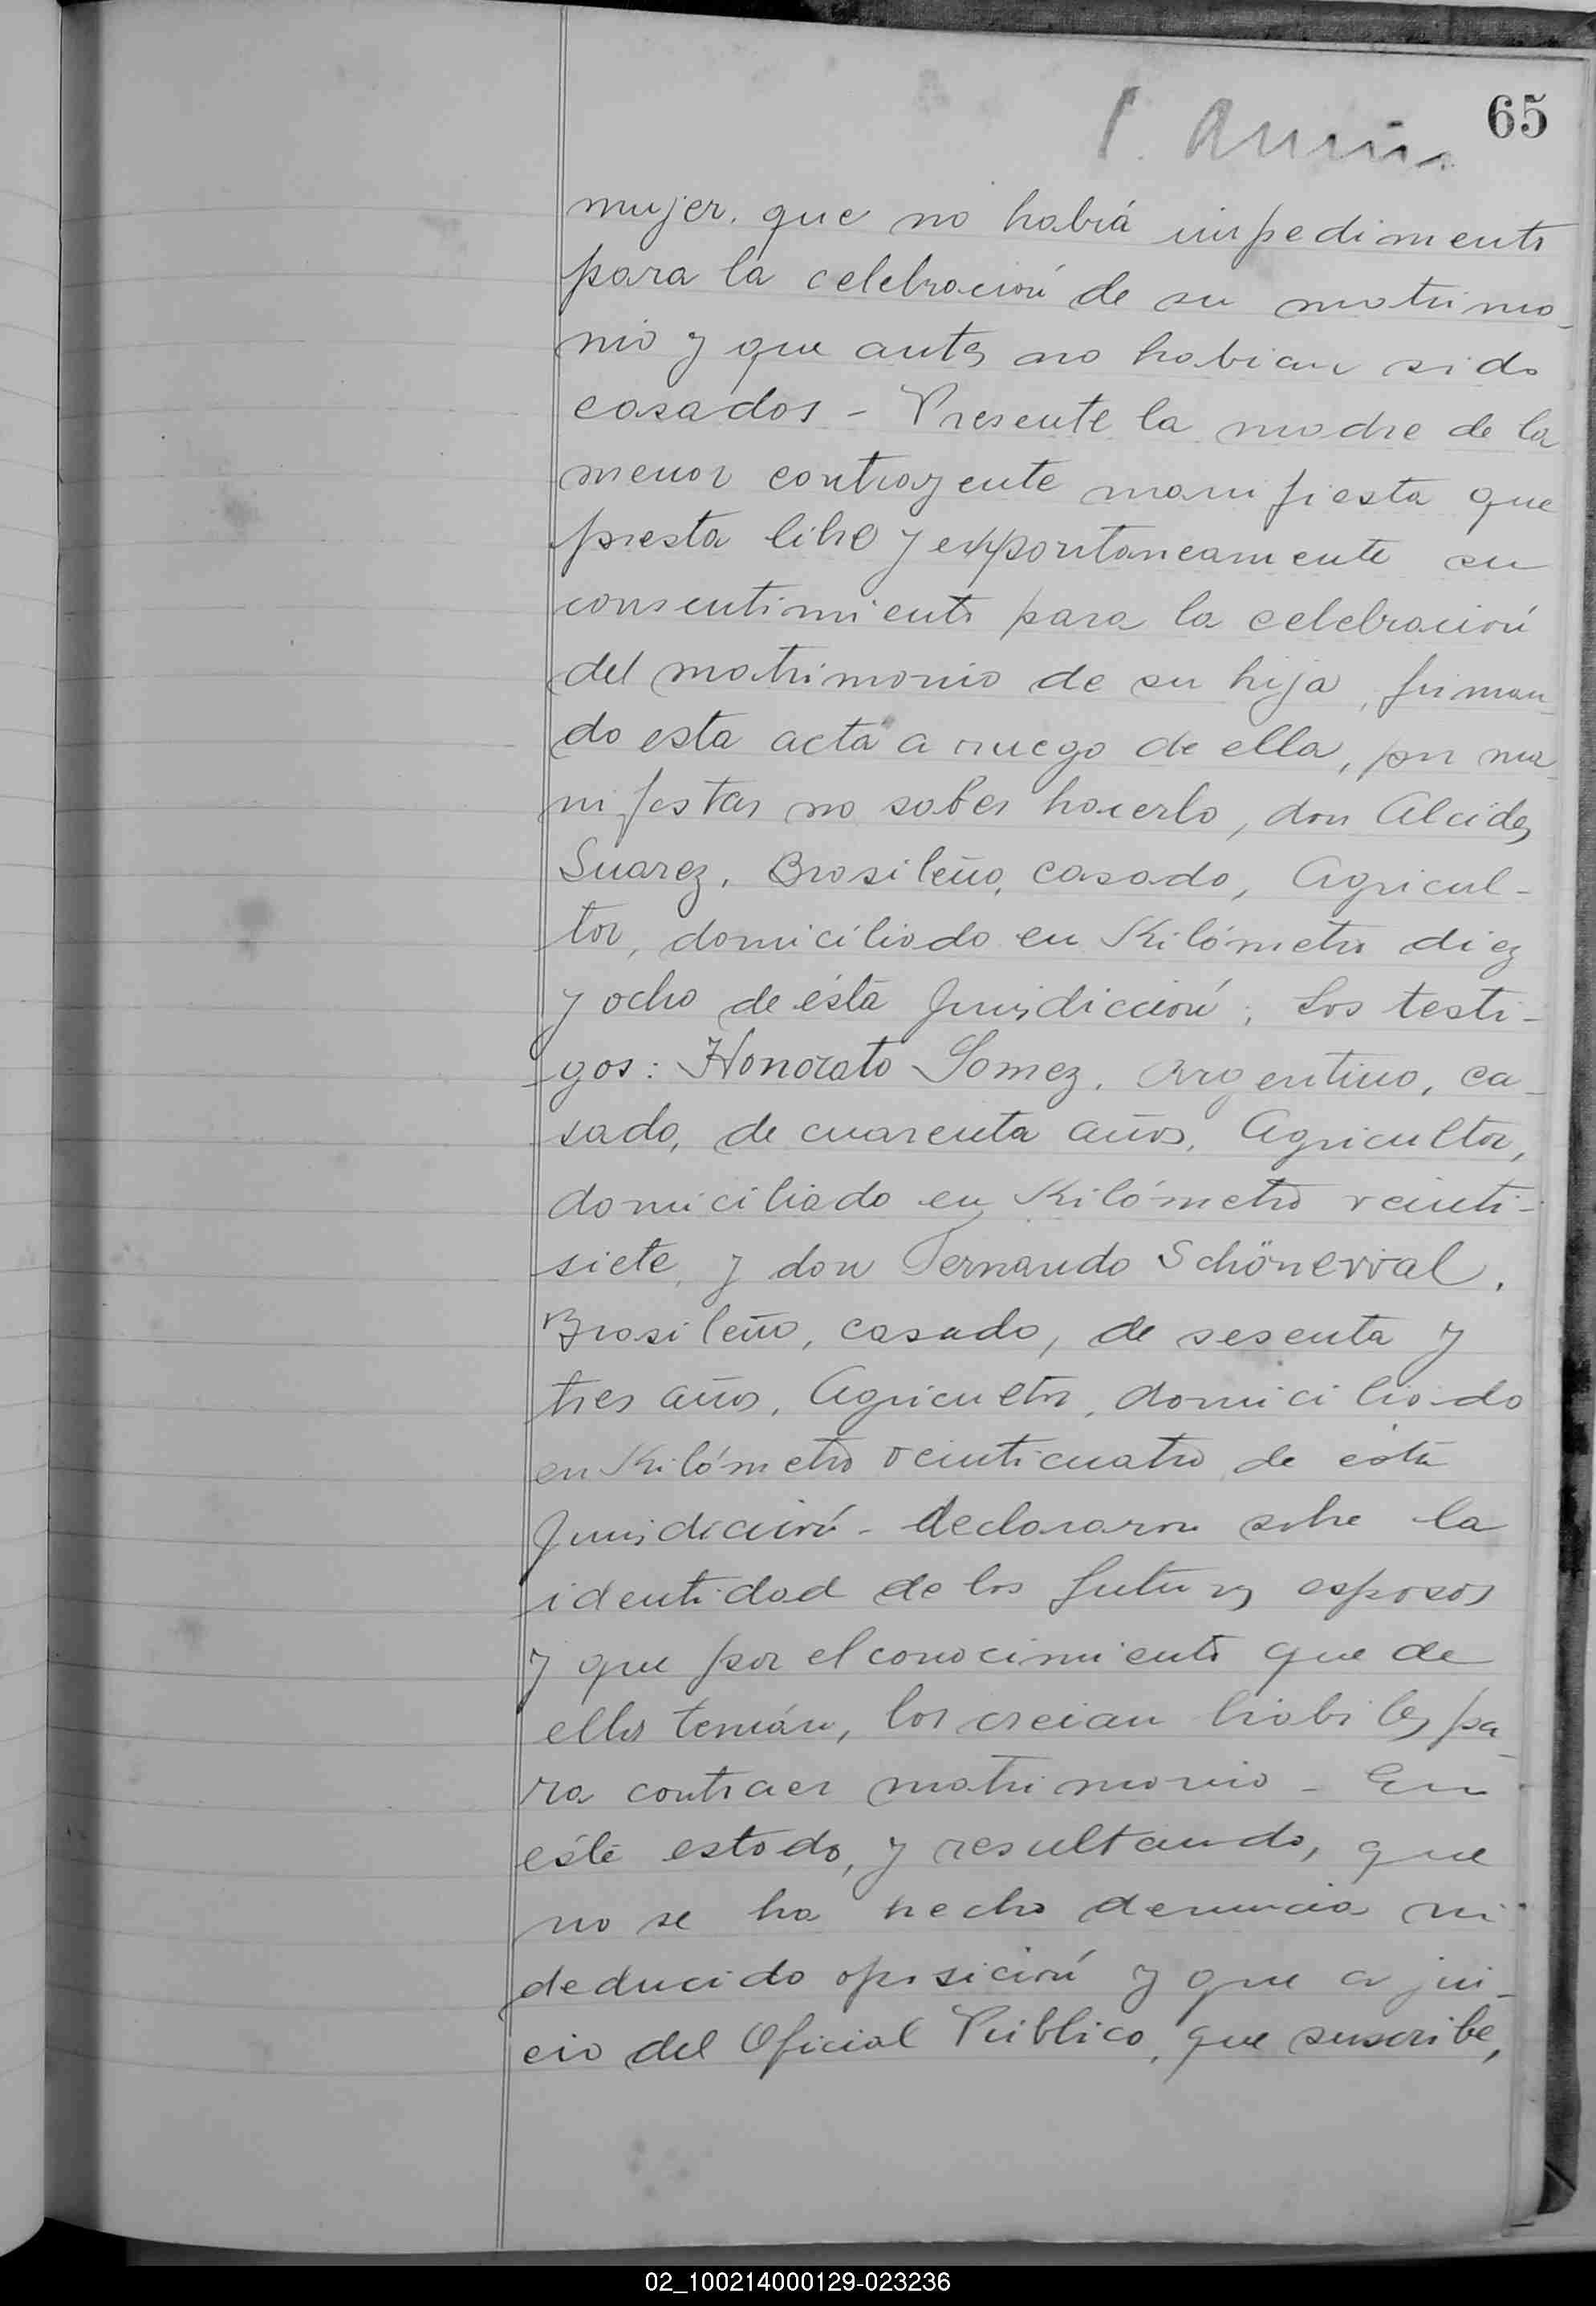 65
mujer. que no habiá impedimento
para la celebración de su matrimo-
nio y que antes no habian sido
casados - Presente la madre de la
menor contrayente manifiesta que
presta libre y expontaneamente su
consentimiento para la celebración
del matrimonio de su hija, firman-
do esta acta a ruego de ella, por ma-
nifestar no saber hacerlo, don Alcides
Suarez, Brasileño, casado, Agricul-
tor, domiciliado en Kilómetro diez
y ocho de ésta Jurisdicción; Los testi-
gos: Honorato Gomez, Argentino, ca-
sado, de cuarenta años, Agricultor,
domiciliado en Kilómetro veinti-
siete, y don Fernando Schönerval,
Brasileño, casado, de sesenta y
tres años, Agricultor, domiciliado
en Kilómetro veinticuatro de ésta
Jurisdicción - declararon sobre la
identidad de los futuros esposos
y que por el conocimiento que de
ellos tenián, los creian habiles pa-
ra contraer matrimonio - En
éste estado, y resultando, que
no se ha hecho denuncia ni
deducido oposición y que a jui-
cio del Oficial Público, que suscribe,
02_100214000129-023236